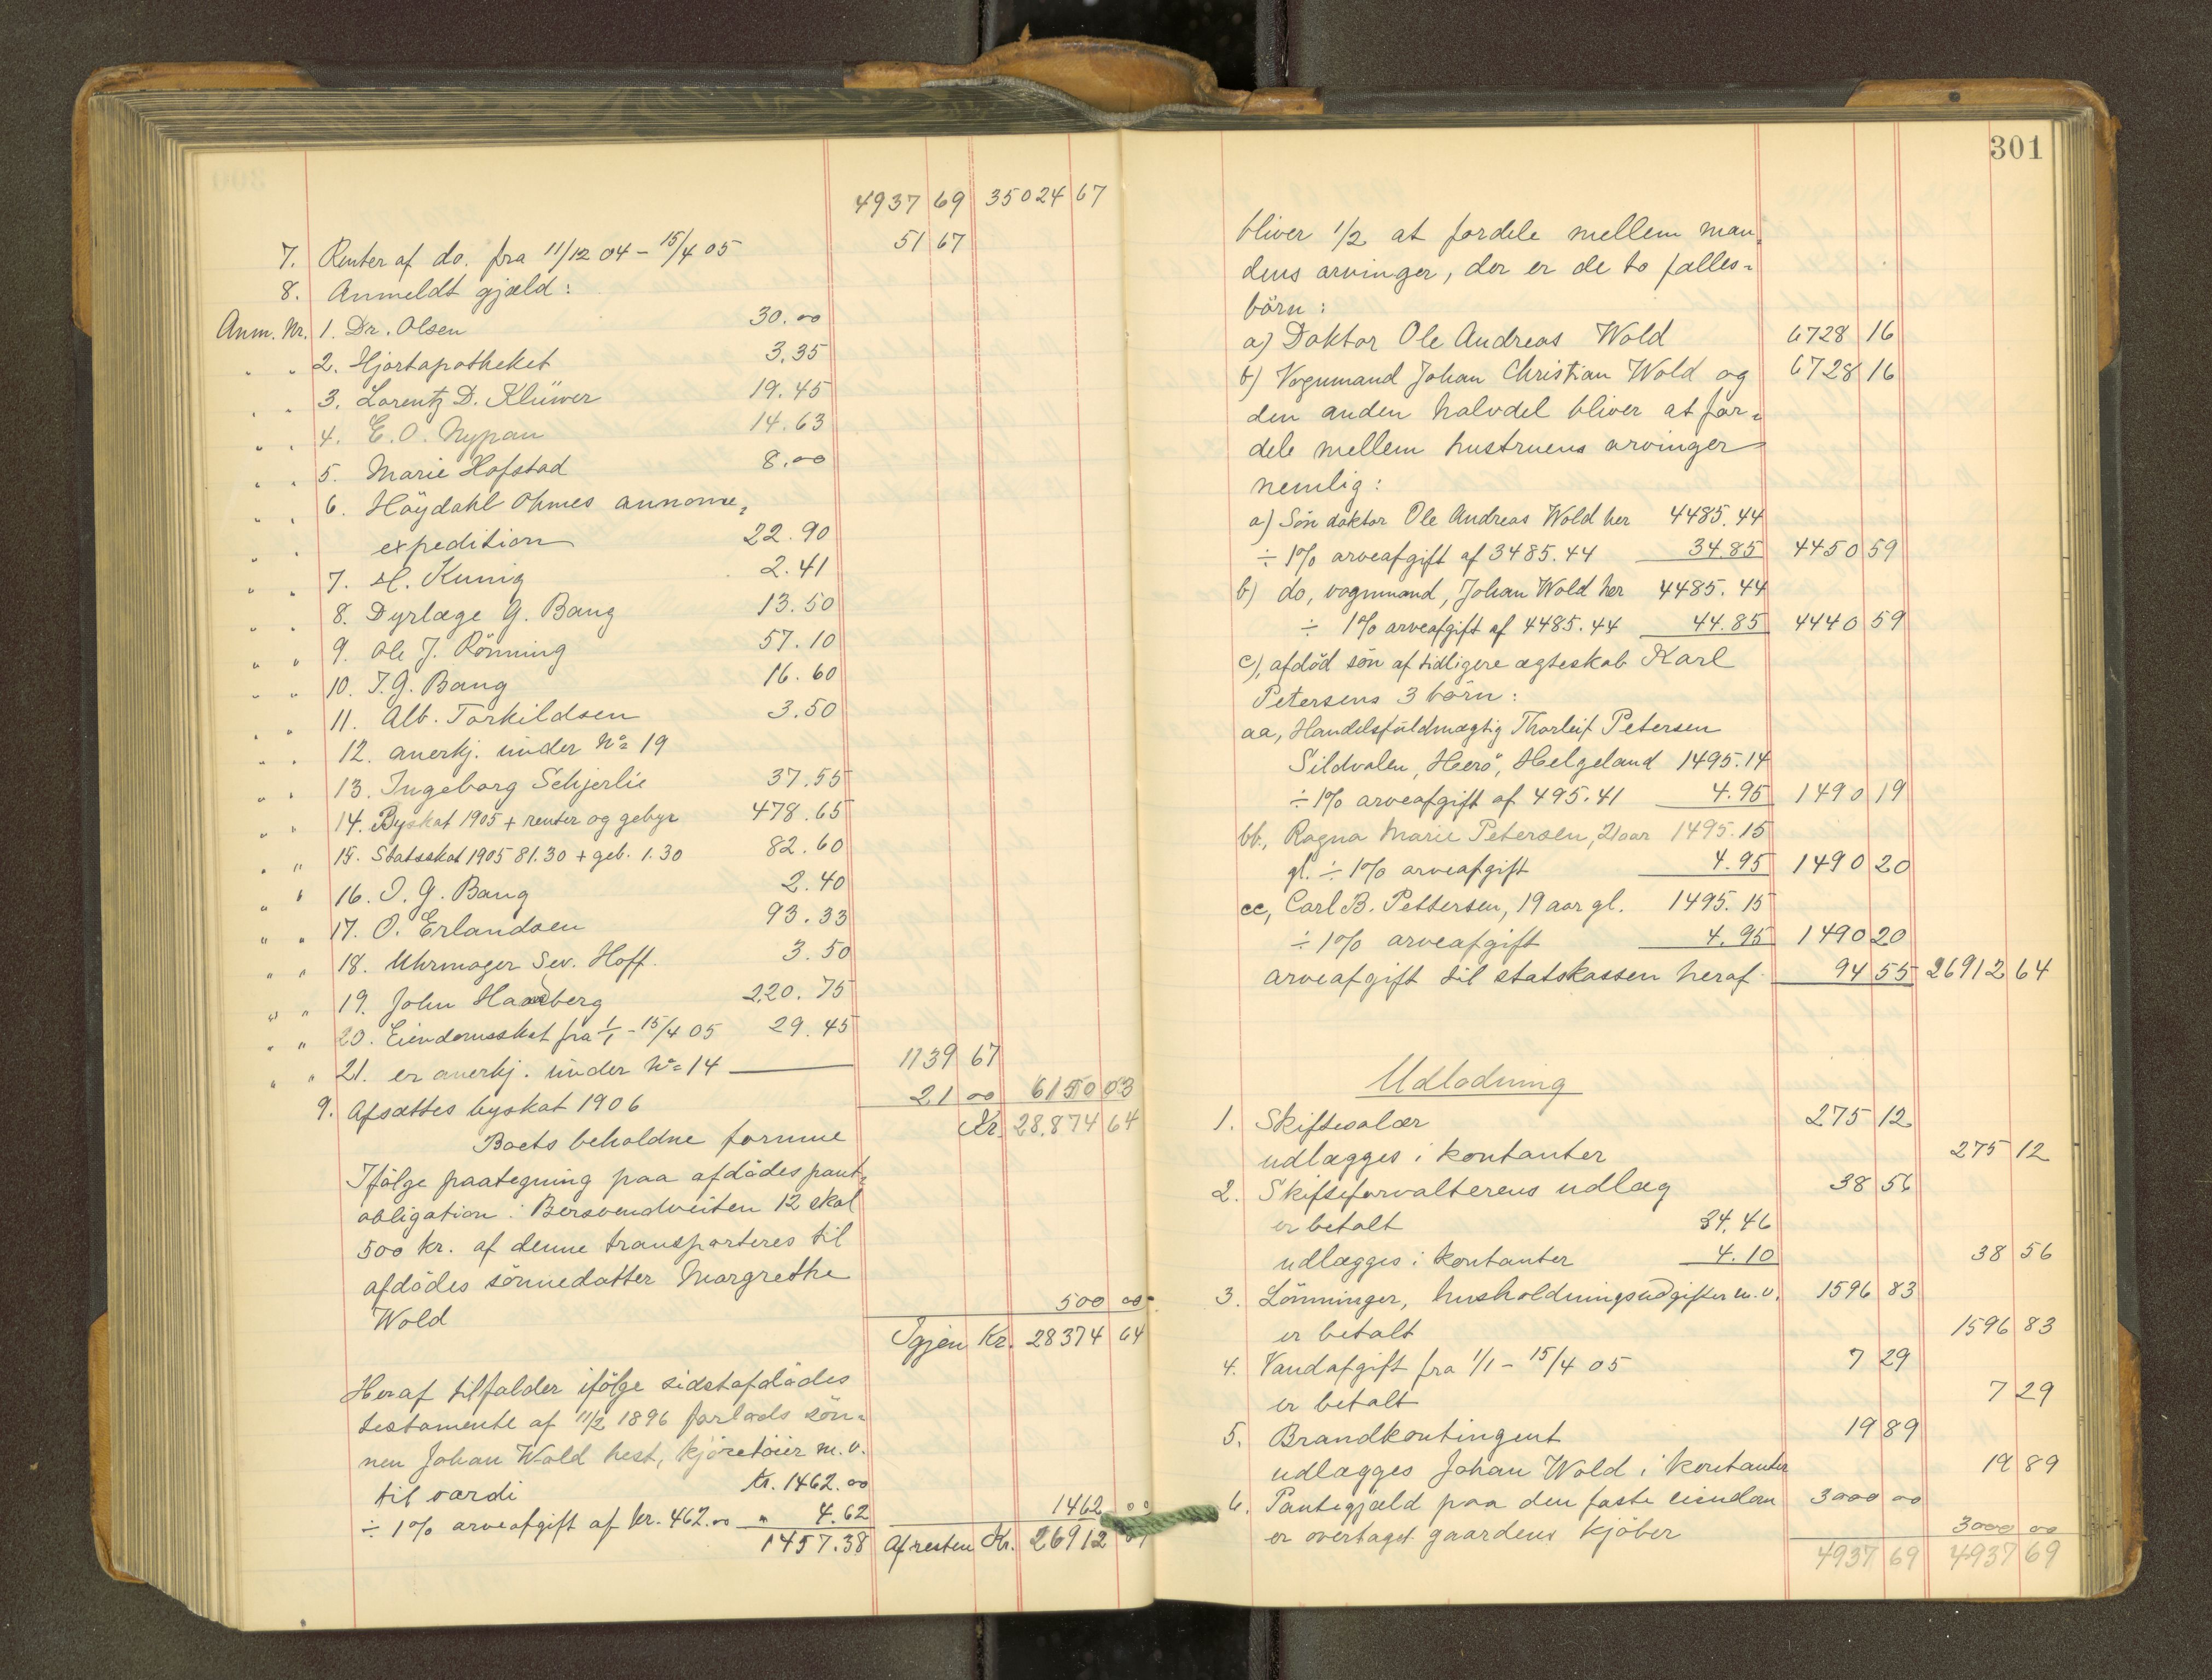 4937 69 35024 67
7. Renter af do. fra 11/12 04 - 15/4 05 51 67
8. Anmeldt gjæld:
Anm. Nr. 1. Dr. Olsen 30.00
" " 2. Hjortapotheket 3.35
" " 3. Lorentz D. Klüwer 19.45
" " 4. E. O. Nypan 14.63
" " 5. Marie Hofstad 8.00
" " 6. Höydahl Ohmes annonce=
" " expedition 22.90
" " 7. H. Kunig 2.41
" " 8. Dyrlæge G. Bang 13.50
" " 9. Ole J. Rönning 57.10
" " 10. I. G. Bang 16.60
" " 11. Alb. Torkildsen 3.50
" " 12. anerkj. under No 19
" " 13. Ingeborg Schjerlie 37.55
" " 14. Byskat 1905 + renter og gebyr 478.65
" " 15. Statsskat 1905 81.30 + geb. 1.30 82.60
" " 16. I. G. Bang 2.40
" " 17. O. Erlandsen 93.33
" " 18. Uhrmager Sev. Hoff. 3.50
" " 19. John Haarberg 220.75
" " 20. Eiendomsskat fra 1/1 - 15/4 05 29.45
" " 21. er anerkj. under No 14 1139 67
9. Afsættes byskat 1906 21 00 6150 03
Boets beholdne formue Kr. 28.874 64
Ifölge paategning paa afdödes pant=
obligation i Bersvendveiten 12 skal
500 kr. af denne transporteres til
afdödes sönnedatter Margrethe
Wold 500 00
Igjen Kr. 28374 64
Heraf tilfalder ifölge sidstafdödes
testamente af 11/2 1896 forlods sön=
nen Johan Wold hest, kjöretöier m.v.
til værdi kr. 1462.00 1462 00
÷ 1% arveafgift af kr. 462.00 " 4.62
1457.38 Af resten Kr. 26912 64
301
bliver 1/2 at fordele mellem man=
dens arvinger, der er de to fælles=
börn:
a) Doktor Ole Andreas Wold 6728 16
b) Vognmand Johan Christian Wold og 6728 16
den anden halvdel bliver at for=
dele mellem hustruens arvinger
nemlig:
a) Sön doktor Ole Andreas Wold her 4485.44
÷ 1% arveafgift af 3485.44 34.85 4450 59
b) do, vognmand, Johan Wold her 4485.44
÷ 1% arveafgift af 4485.44 44.85 4440 59
c), afdöd sön af tidligere ægteskab Karl
Petersens 3 börn:
aa, Handelsfuldmægtig Thorleif Petersen
Sildvalen, Herö, Helgeland 1495.14
÷ 1% arveafgift af 495.41 4.95 1490 19
bb, Ragna Marie Petersen, 21 aar 1495.15
gl. ÷ 1% arveafgift 4.95 1490 20
cc, Carl B. Pettersen, 19 aar gl. 1495.15
÷ 1% arveafgift 4.95 1490 20
arveafgift til statskassen heraf 94 55 26912 64
Udlodning
1. Skiftesalær 275 12
udlægges i kontanter 275 12
2. Skifteforvalterens udlæg 38 56
er betalt 34.46
udlægges i kontanter 4.10 38 56
3. Lönninger, husholdningsudgifter m.v. 1596 83
er betalt 1596 83
4. Vandafgift fra 1/1 - 15/4 05 7 29
er betalt 7 29
5. Brandkontingent 19 89
udlægges Johan Wold i kontanter 19 89
6. Pantegjæld paa den faste eiendom 3000 00
er overtaget gaardens kjöber 3000 00
4937 69 4937 69